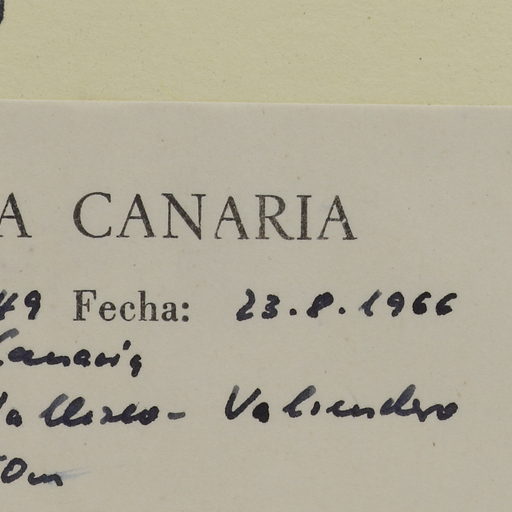 A CANARIA
49 Fecha: 23.8.1966
Canaria
Valleseco - Valsendero
50m